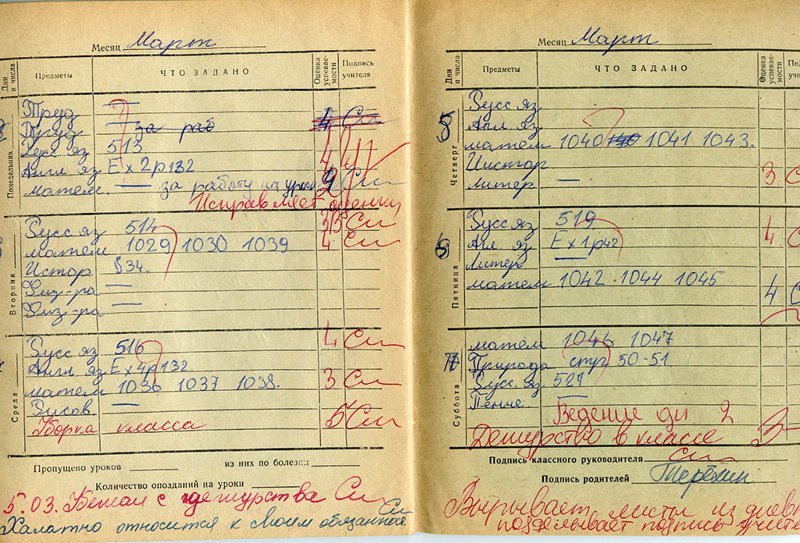 Месяц Март
Дни и числа Предметы ЧТО ЗАДАНО Оценка успевае-мости Подпись учителя
Понедельник
Труд —
Труд — за раб 4 См
Русс яз 513 4
Англ яз Ex 2 p 132 4
матем — за работу на уроке 9 См
Исправляет оценки
Вторник
Русс яз 514 3 См
матем 1029 1030 1039 4 См
Истор § 34.
Физ-ра —
Физ-ра —
Среда
Русс яз 516 4 См
Англ. яз Ex 4 p 132
матем 1036 1037 1038. 3 См
Рисов. —
Уборка класса 5 См
Пропущено уроков из них по болезни
Количество опозданий на уроки
5.03. Бежал с дежурства См
Халатно относится к своим обязанностям См
Месяц Март
Дни и числа Предметы ЧТО ЗАДАНО Оценка успевае-мости По
Четверг
5
Русс яз
Англ яз
матем 1040 1041 1043.
Истор
Литер — 3 С
Пятница
6
Русс яз 519 4 С
Анг яз Ex 1 p 42
Литер —
матем 1042 1044 1045 4 С
Суббота
7
матем 1046 1047
Природа стр 50-51
Русс яз 521
Пение —
Ведение дн 2
Дежурство в классе 3-
Подпись классного руководителя См
Подпись родителей Терёхин
Вырывает листы из днев
подделывает подпись учите